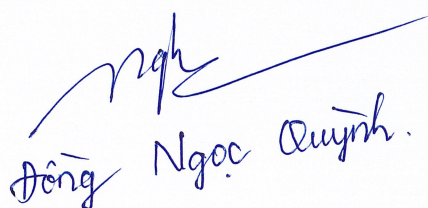 Đồng Ngọc Quỳnh.